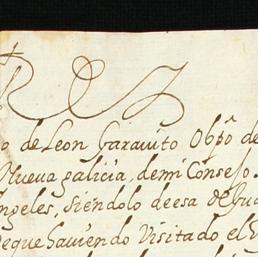 o de Leon Garauito Obpõ de
Nueva galicia, demi Consejo.
ngeles, siendolo de esa de Gua
deque haviendo Visitado el V